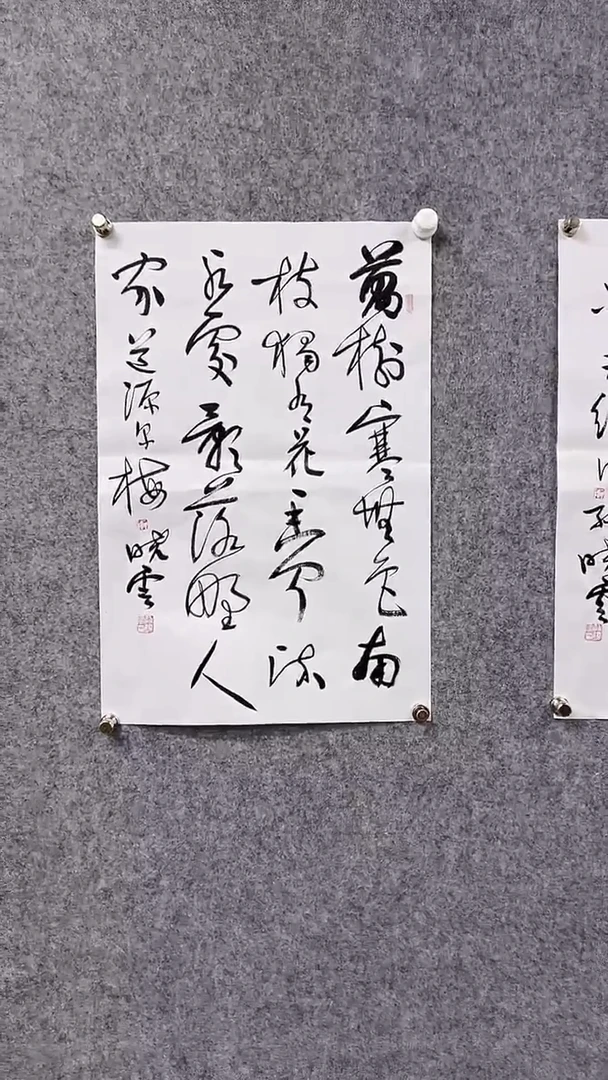 萬樹寒無色南
枝獨有花香聞流
水處影落野人
家 道源早梅 曉雲
孫曉雲